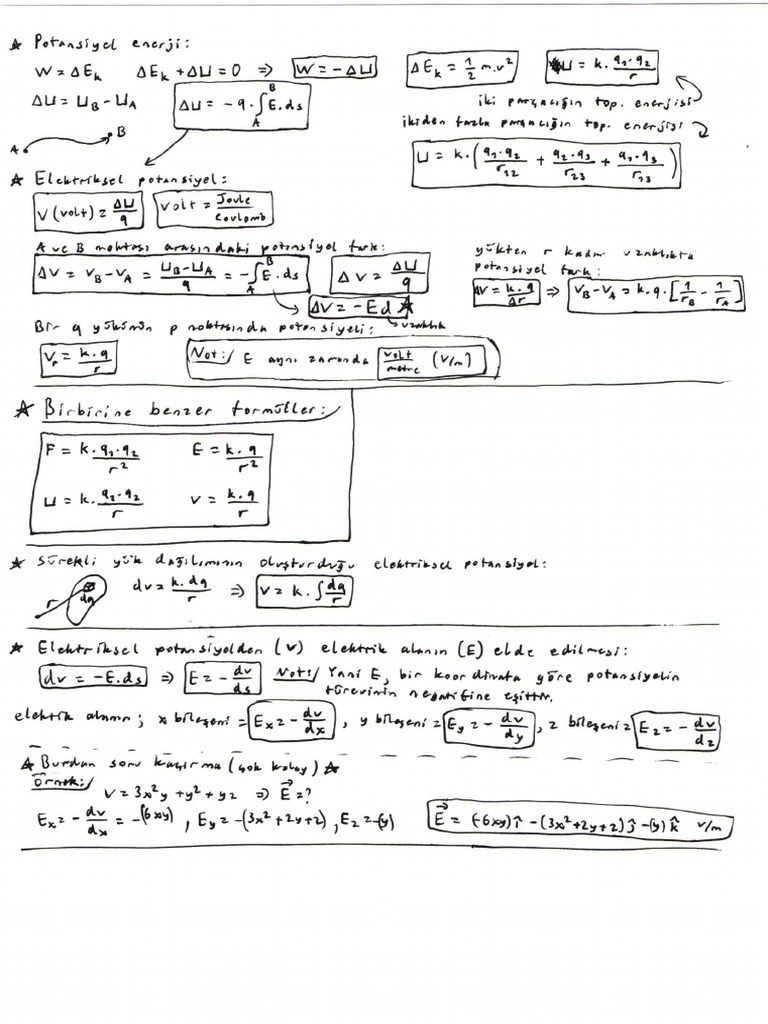 ★ Potansiyel enerji:
W = ΔE_k   ΔE_k + ΔU = 0 ⇒ W = -ΔU   ΔE_k = 1/2 m.v²   U = k. q₁.q₂/r
iki parçacığın top. enerjisi
ΔU = U_B - U_A   ΔU = -q. ∫_A^B E.ds
ikiden fazla parçacığın top. enerjisi
A   B
U = k. (q₁.q₂/r₁₂ + q₂.q₃/r₂₃ + q₁.q₃/r₁₃)
★ Elektriksel potansiyel:
V(volt) = ΔU/q   volt = Joule/Coulomb
A ve B noktası arasındaki potansiyel fark:
ΔV = V_B - V_A = U_B - U_A/q = -∫_A^B E.ds   ΔV = ΔU/q
yükten r kadar uzaklıkta
potansiyel fark:
ΔV = k.q/Δr ⇒ V_B - V_A = k.q.[1/r_B - 1/r_A]
ΔV = -Ed
uzaklık
Bir q yükünün p noktasında potansiyeli:
V_p = k.q/r   Not:/ E aynı zamanda volt/metre (V/m)
★ Birbirine benzer formüller:
F = k. q₁.q₂/r²   E = k.q/r²
U = k. q₁.q₂/r   V = k.q/r
★ Sürekli yük dağılımının oluşturduğu elektriksel potansiyel:
r   dq   dv = k.dq/r ⇒ V = k. ∫dq/r
★ Elektriksel potansiyelden (V) elektrik alanın (E) elde edilmesi:
dv = -E.ds ⇒ E = -dv/ds   Not:/ Yani E, bir koordinata göre potansiyelin
türevinin negatifine eşittir.
elektrik alanın; x bileşeni = E_x = -dv/dx, y bileşeni = E_y = -dv/dy, z bileşeni = E_z = -dv/dz
★ Burdan soru kaçırma (çok kolay) ★
Örnek:/
V = 3x²y + y² + yz ⇒ E⃗ = ?
E_x = -dv/dx = -(6xy), E_y = -(3x² + 2y + z), E_z = -(y)   E⃗ = (-6xy)î - (3x² + 2y + z)ĵ - (y)k̂ V/m